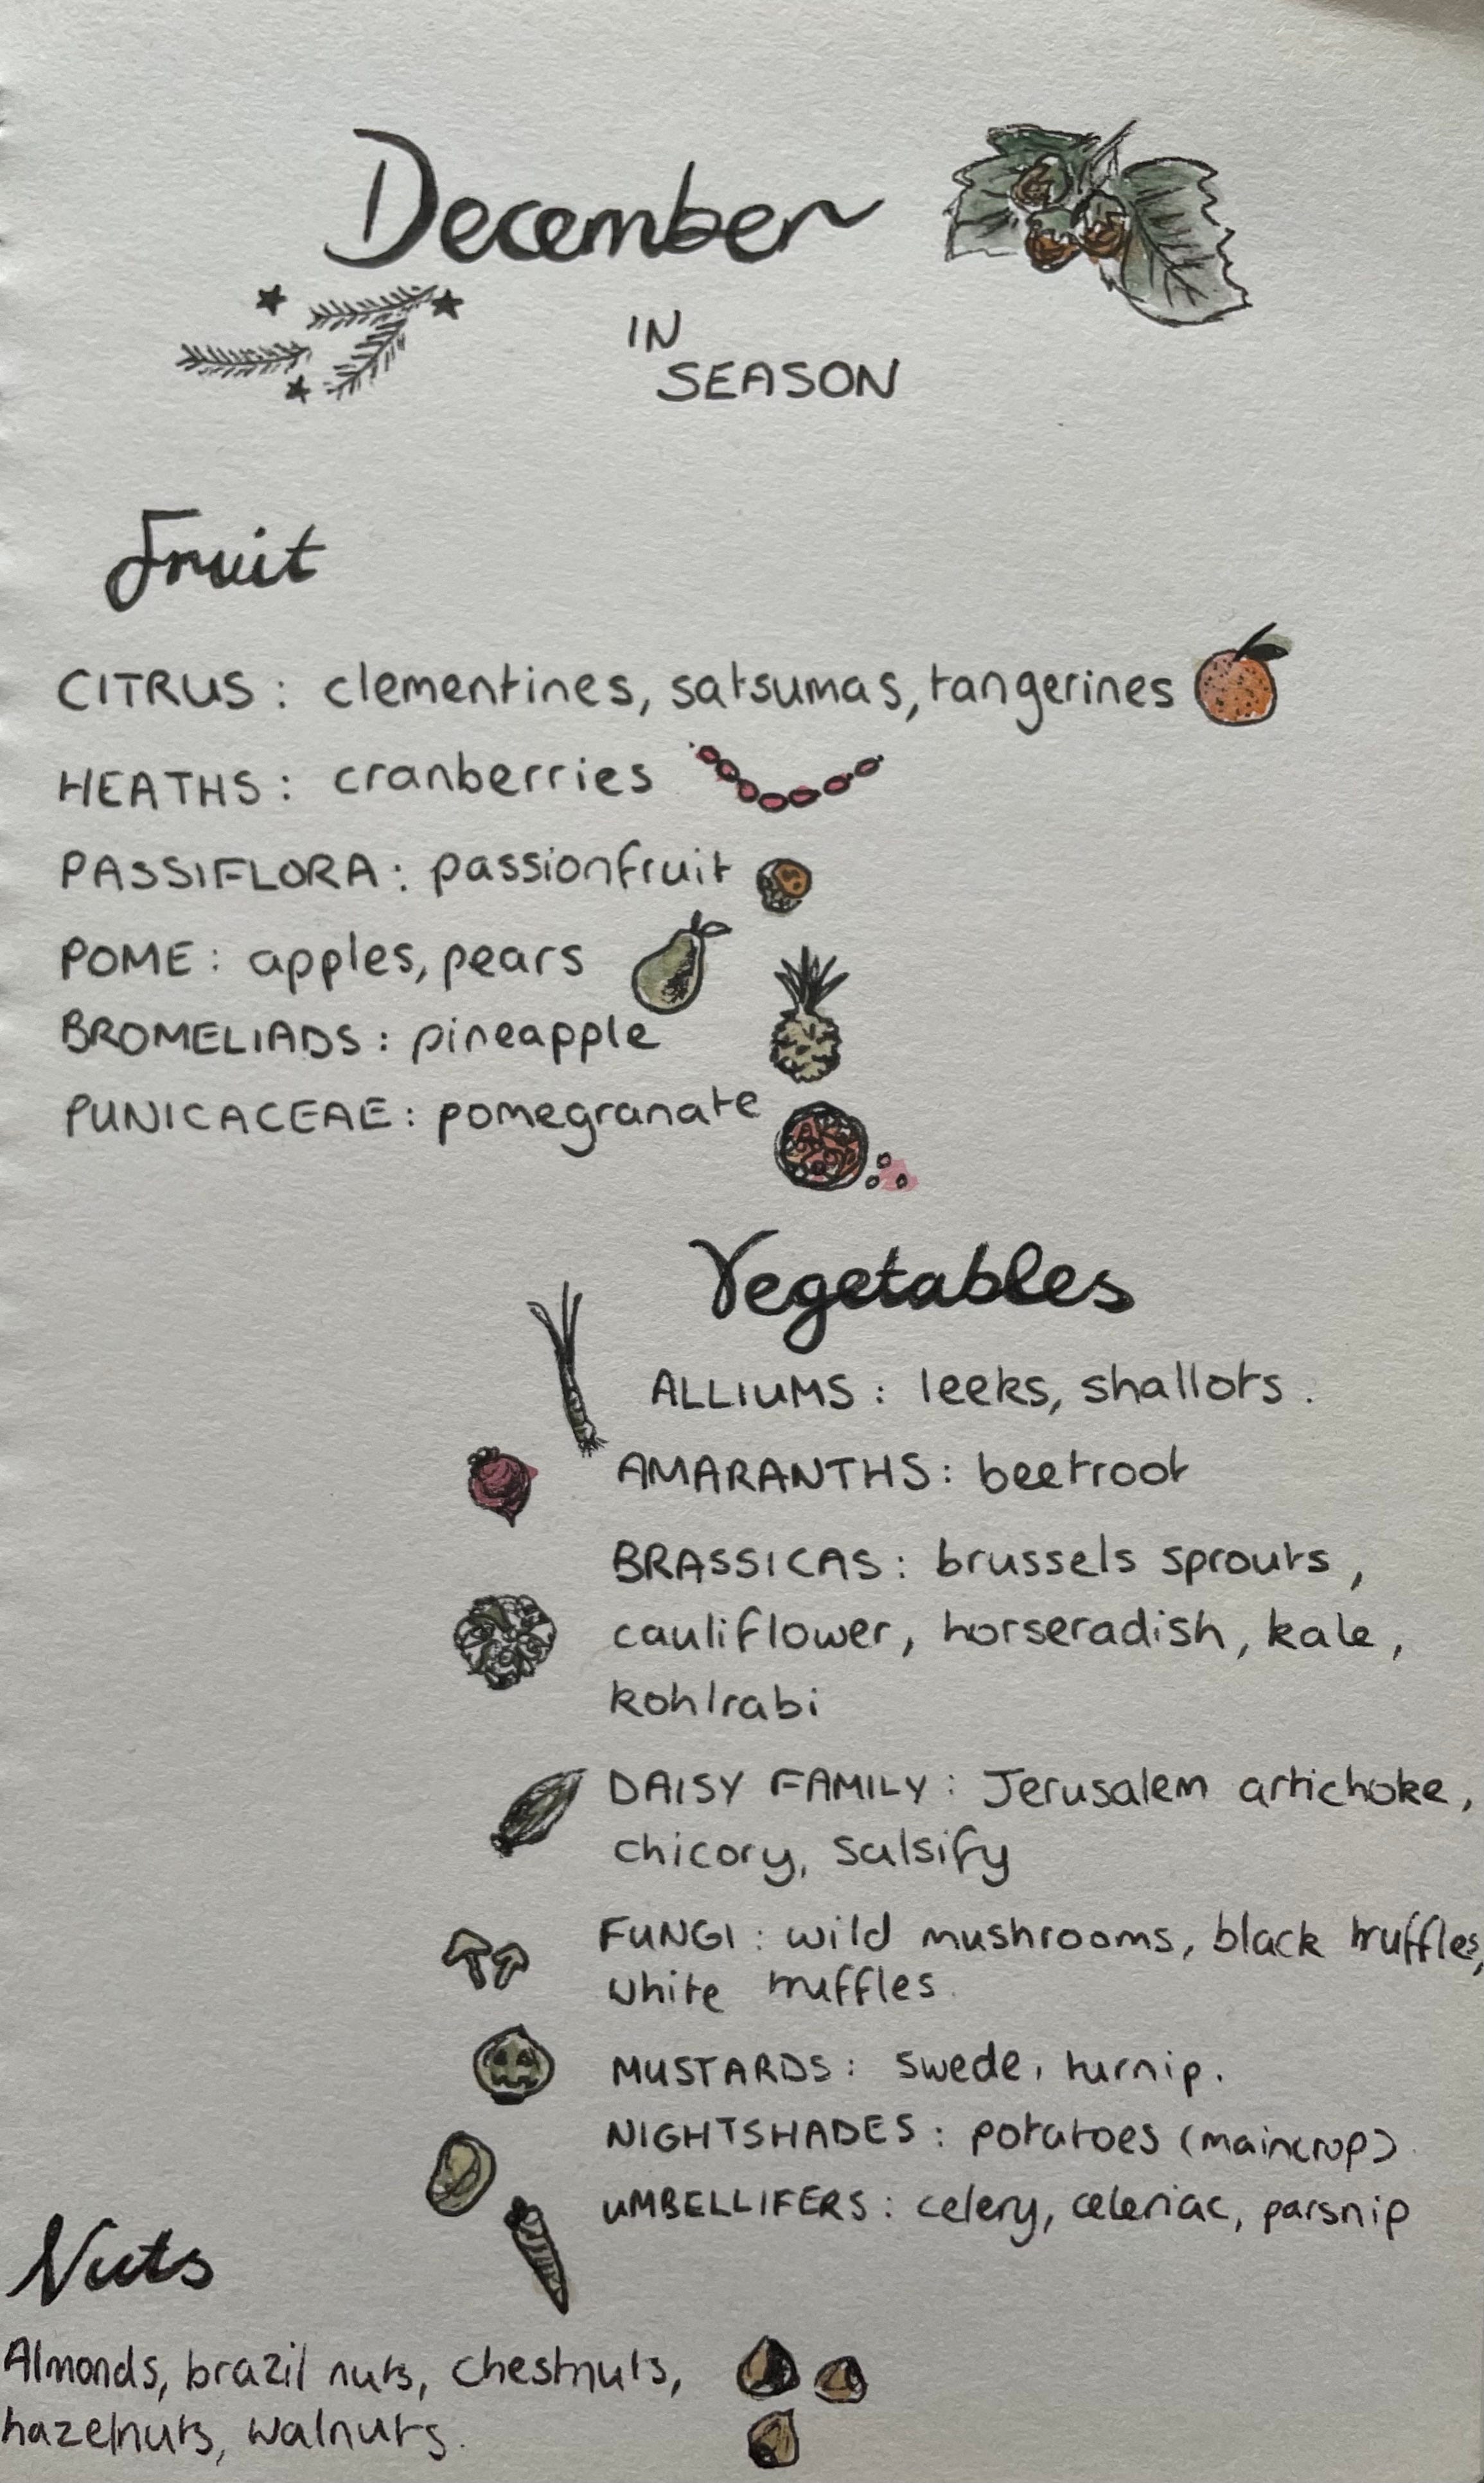 December
IN
SEASON
Fruit
CITRUS: clementines, satsumas, tangerines
HEATHS: cranberries
PASSIFLORA: passionfruit
POME: apples, pears
BROMELIADS: pineapple
PUNICACEAE: pomegranate
Vegetables
ALLIUMS: leeks, shallots.
AMARANTHS: beetroot
BRASSICAS: brussels sprouts,
cauliflower, horseradish, kale,
kohlrabi
DAISY FAMILY: Jerusalem artichoke,
chicory, salsify
FUNGI: wild mushrooms, black truffles,
white truffles.
MUSTARDS: swede, turnip.
NIGHTSHADES: potatoes (maincrop).
UMBELLIFERS: celery, celeriac, parsnip
Nuts
Almonds, brazil nuts, chestnuts,
hazelnuts, walnuts.